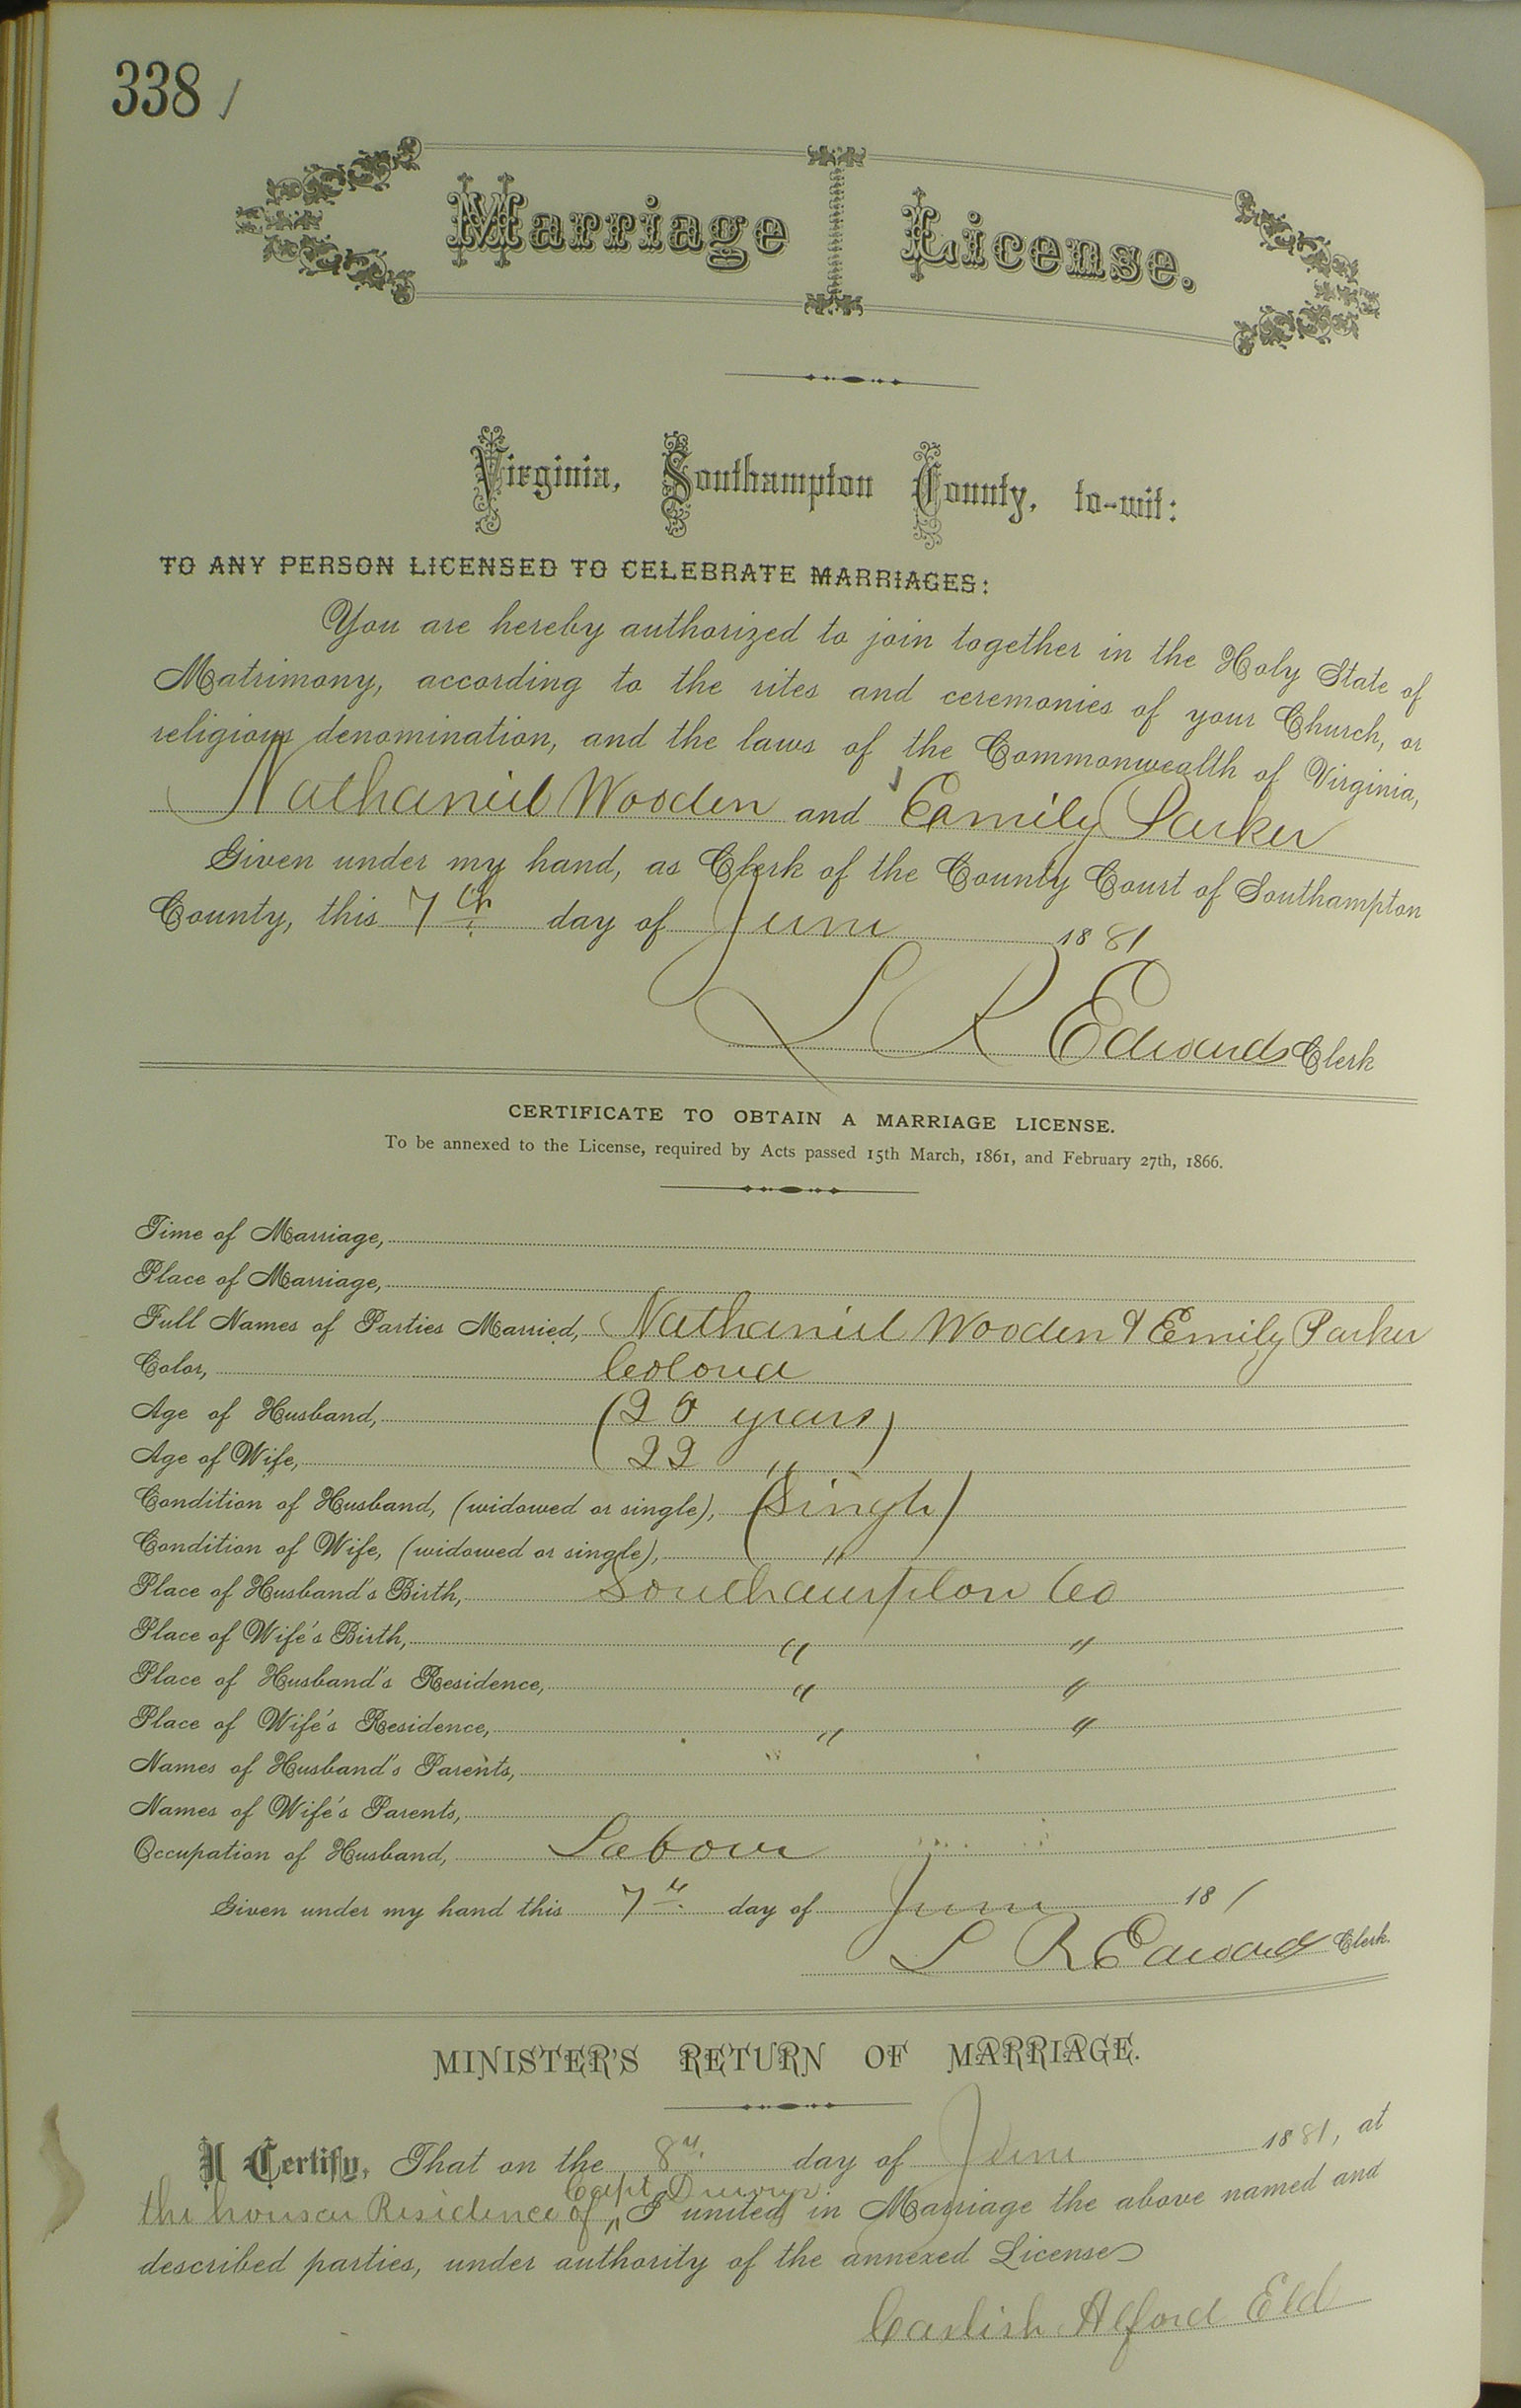 338 /
Marriage License.
Virginia, Southampton County, to-wit:
TO ANY PERSON LICENSED TO CELEBRATE MARRIAGES:
You are hereby authorized to join together in the Holy State of
Matrimony, according to the rites and ceremonies of your Church, or
religious denomination, and the laws of the Commonwealth of Virginia,
Nathaniel Wooden and Emily Parker
Given under my hand, as Clerk of the County Court of Southampton
County, this 7th day of June 1881
L R Edwards Clerk
CERTIFICATE TO OBTAIN A MARRIAGE LICENSE.
To be annexed to the License, required by Acts passed 15th March, 1861, and February 27th, 1866.
Time of Marriage,
Place of Marriage,
Full Names of Parties Married, Nathaniel Wooden & Emily Parker
Color, Colored
Age of Husband, (2 years)
Age of Wife, (22 ")
Condition of Husband, (widowed or single), (Single)
Condition of Wife, (widowed or single), ( " )
Place of Husband's Birth, Southampton Co
Place of Wife's Birth, " "
Place of Husband's Residence, " "
Place of Wife's Residence, " "
Names of Husband's Parents,
Names of Wife's Parents,
Occupation of Husband, Labour
Given under my hand this 7th day of June 18 1
L R Edwards Clerk.
MINISTER'S RETURN OF MARRIAGE.
I Certify, That on the 8th day of June 1881, at
Capt
the Residence of ^ I united in Marriage the above named and
described parties, under authority of the annexed License
Carlish Alford Eld